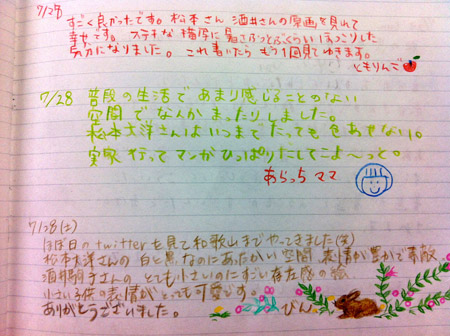 7/28
すごく良かったです。松本さん 酒井さんの原画を見れて
幸せです。ステキな描写に暑さぶっとぶくらい ほっこりした
気分になりました。これ書いたら もう1回見てゆきます。
ともりんご
7/28 普段の生活で あまり感じることのない
空間で なんか まったりしました。
松本大洋さんは いつまでたっても 色あせない。
実家 行って マンガ ひっぱりだしてこよ〜っと。
あらっち ママ
7/28(土)
ほぼ日のtwitterを見て和歌山までやってきました(笑)
松本大洋さんの 白と黒なのにあたたかい空間、表情が豊かで素敵
酒井駒子さんの とても小さいのにすごい存在感の絵
小さい子供の表情が とっても可愛いです。
ありがとうございました。
びん